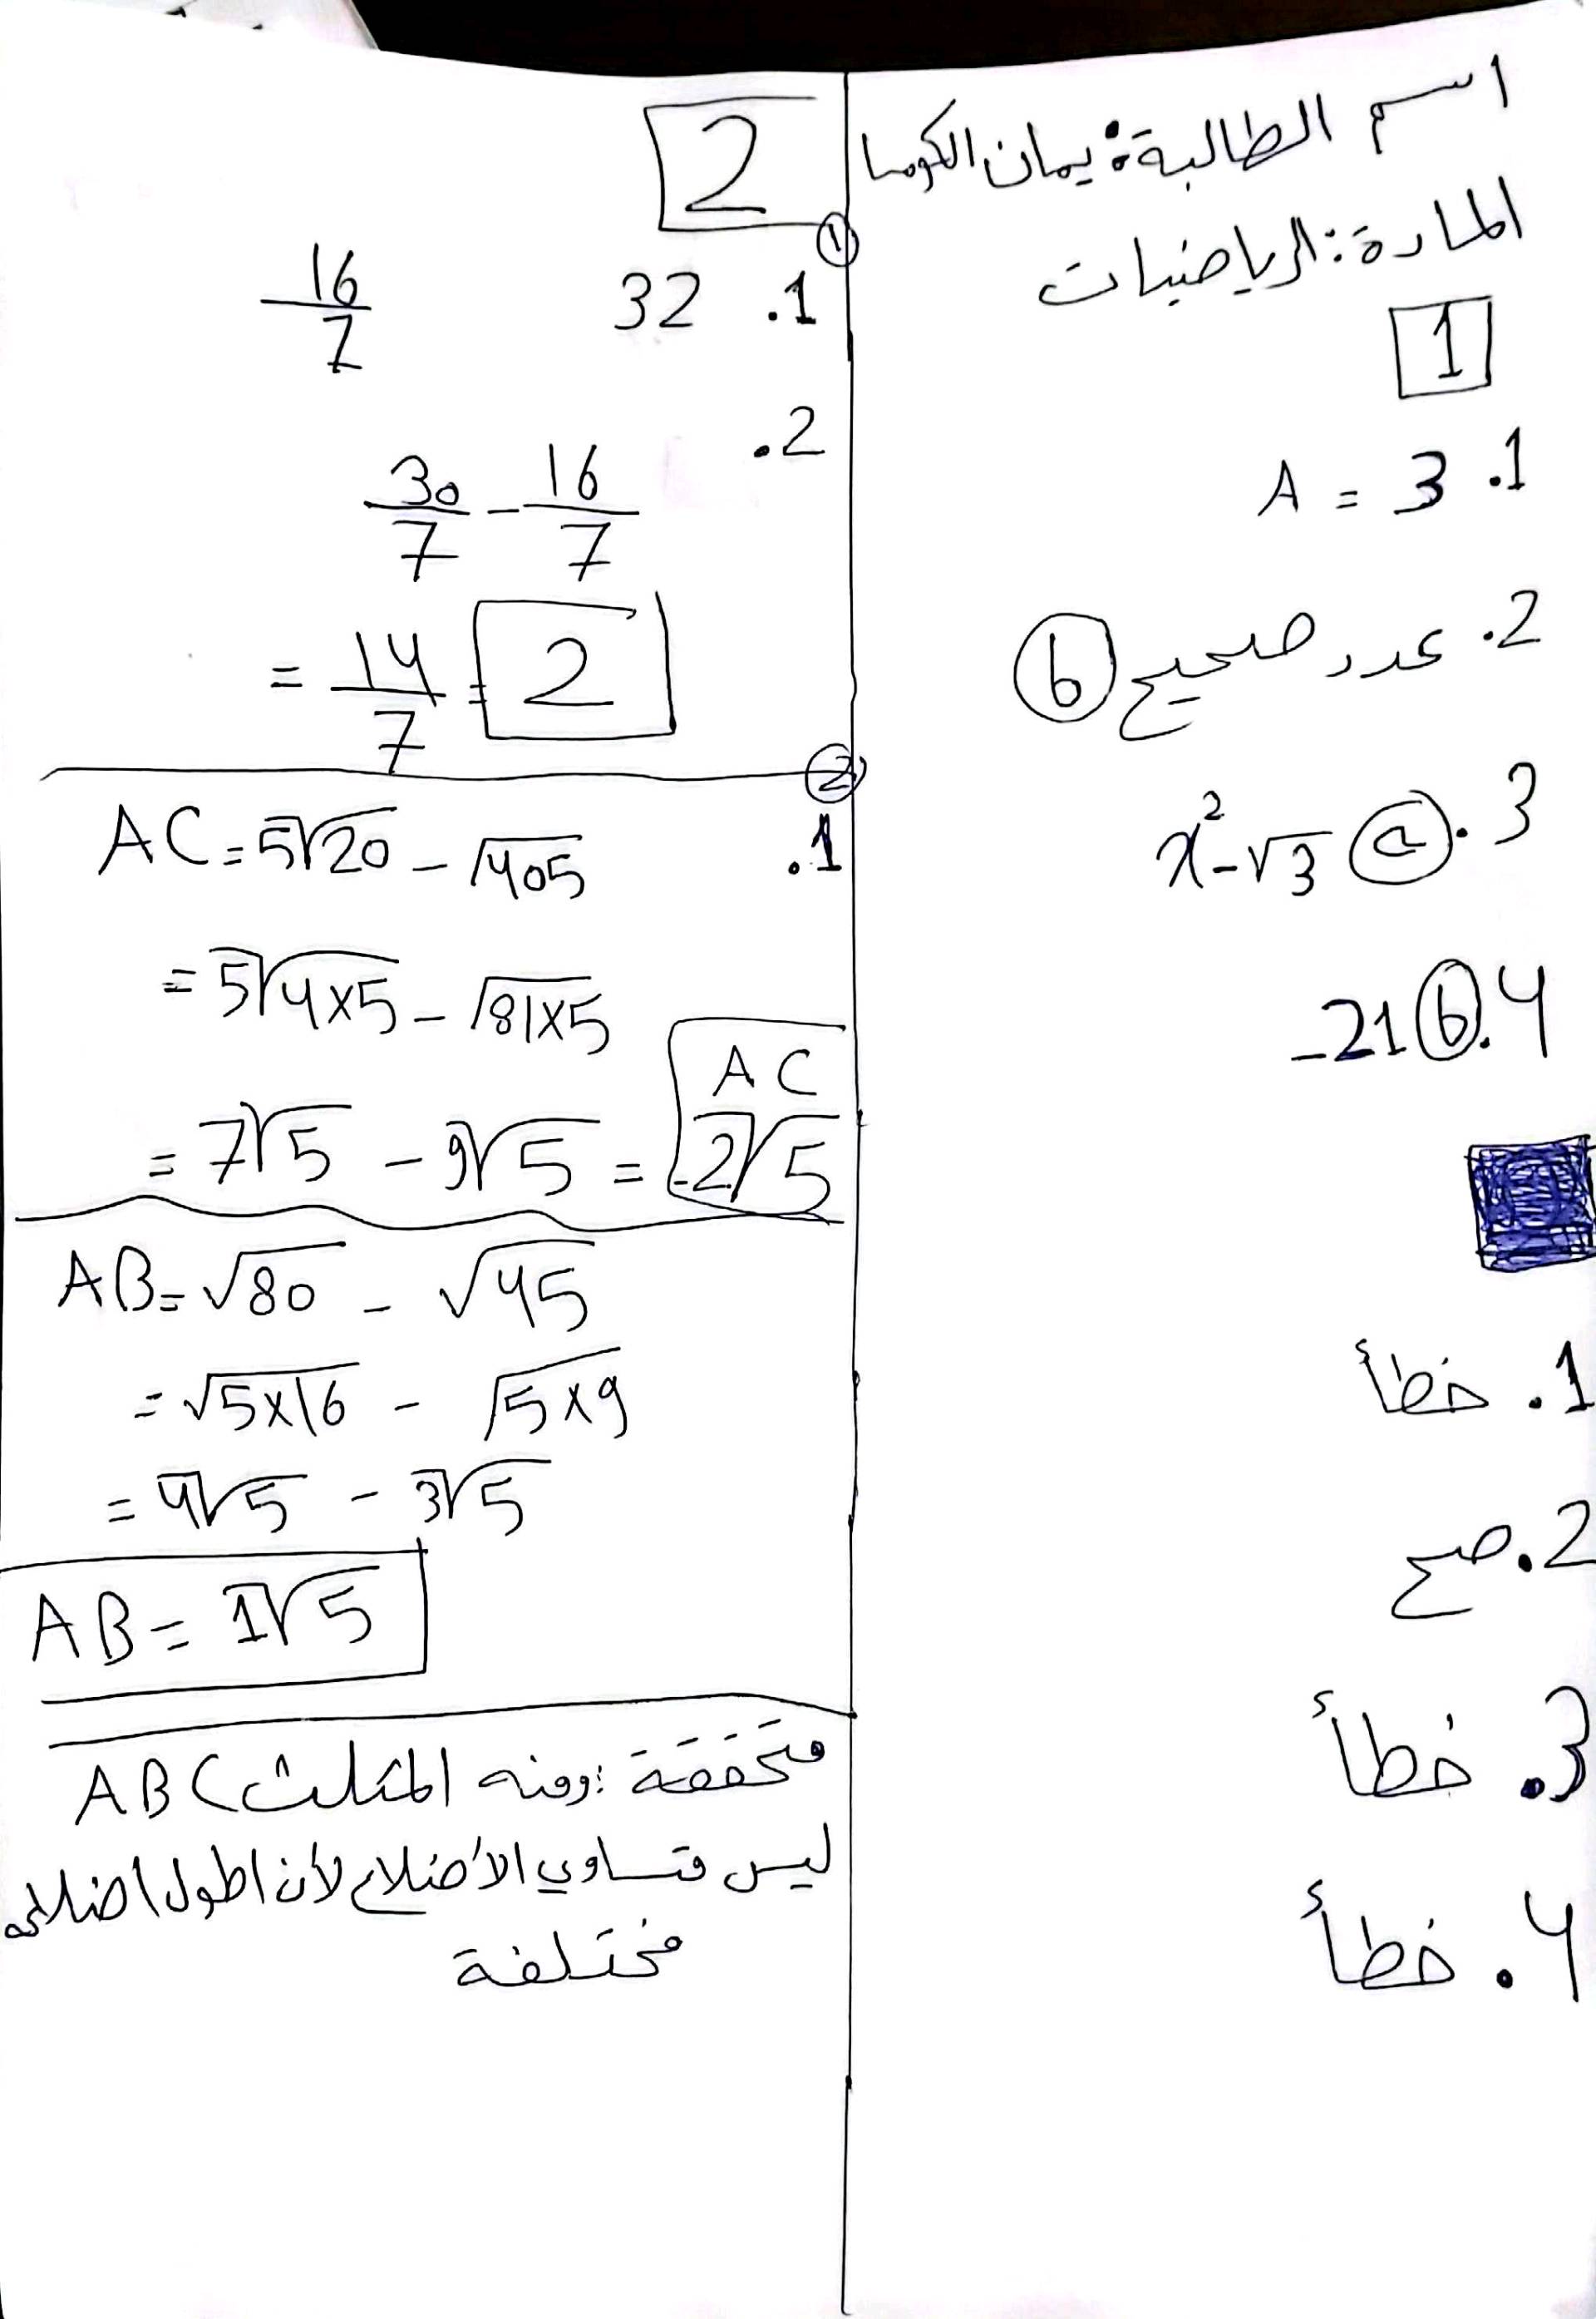 اسم الطالبة: يمان الكوسا
المادة: الرياضيات
1
1. A = 3
2. عدد صحيح b
3. a x²-√3
4. b -21
1. خطأ
2. صح
3. خطأ
4. خطأ
2
①
1. 32 16/7
2.
30/7 - 16/7
= 14/7 = 2
②
1.
AC = 5√20 - √405
= 5√4×5 - √81×5
= 7√5 - 9√5 = AC -2√5
AB = √80 - √45
= √5×16 - √5×9
= 4√5 - 3√5
AB = 1√5
متحققة: ومنه المثلث ABC
ليس متساوي الأضلاع لأن اطول اضلاعه
مختلفة